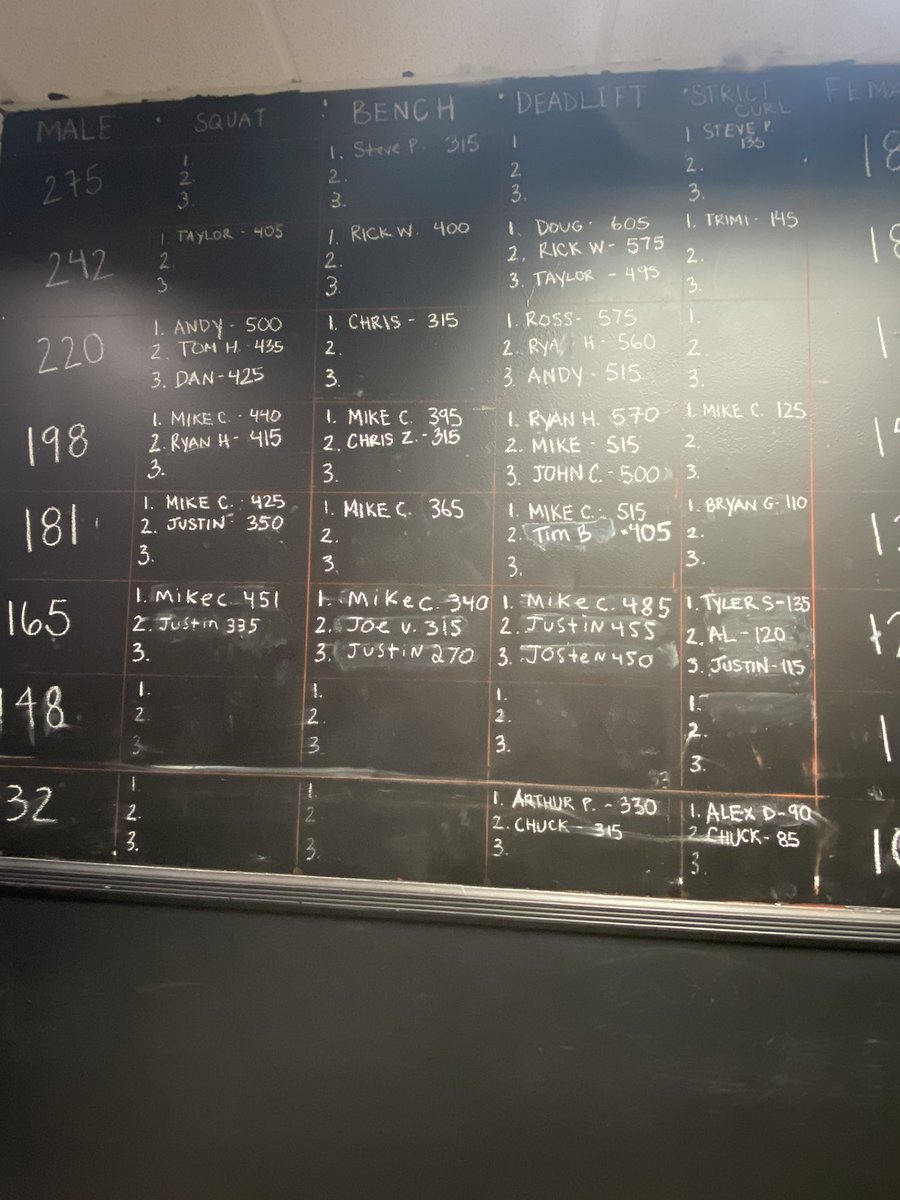 MALE · SQUAT · BENCH · DEADLIFT · STRICT CURL FEMA
275
1.
2.
3.
1. Steve P. 315
2.
3.
1.
2.
3.
1 STEVE P. 135
2.
3.
18
242
1 TAYLOR - 405
2.
3.
1. RICK W. 400
2.
3.
1. DOUG - 605
2. RICK W - 575
3. TAYLOR - 495
1. TRIMI - 145
2.
3.
18
220
1. ANDY - 500
2. TOM H. - 435
3. DAN - 425
1. CHRIS - 315
2.
3.
1. ROSS - 575
2. RYA H - 560
3 ANDY - 515
1.
2.
3.
1
198
1. MIKE C. - 440
2. RYAN H - 415
3.
1. MIKE C. 395
2. CHRIS Z. - 315
3.
1. RYAN H. 570
2. MIKE - 515
3. JOHN C. - 500
1. MIKE C. 125
2.
3.
181
1. MIKE C. - 425
2. JUSTIN - 350
3.
1. MIKE C. 365
2.
3.
1. MIKE C. - 515
2. Tim B - 405
3.
1. BRYAN G - 110
2.
3.
165
1. Mike C. 451
2. Justin 335
3.
1. Mike C. 340
2. Joe V. 315
3. Justin 270
1. Mike C. 485
2. Justin 455
3. Josten 450
1. TYLER S - 135
2. AL - 120
3. JUSTIN - 115
148
1.
2.
3
1.
2.
3
1.
2.
3.
1.
2.
3.
1
32
1.
2.
3.
1.
2
3.
1. ARTHUR P. - 330
2. CHUCK - 315
3.
1. ALEX D - 90
2 CHUCK - 85
3.